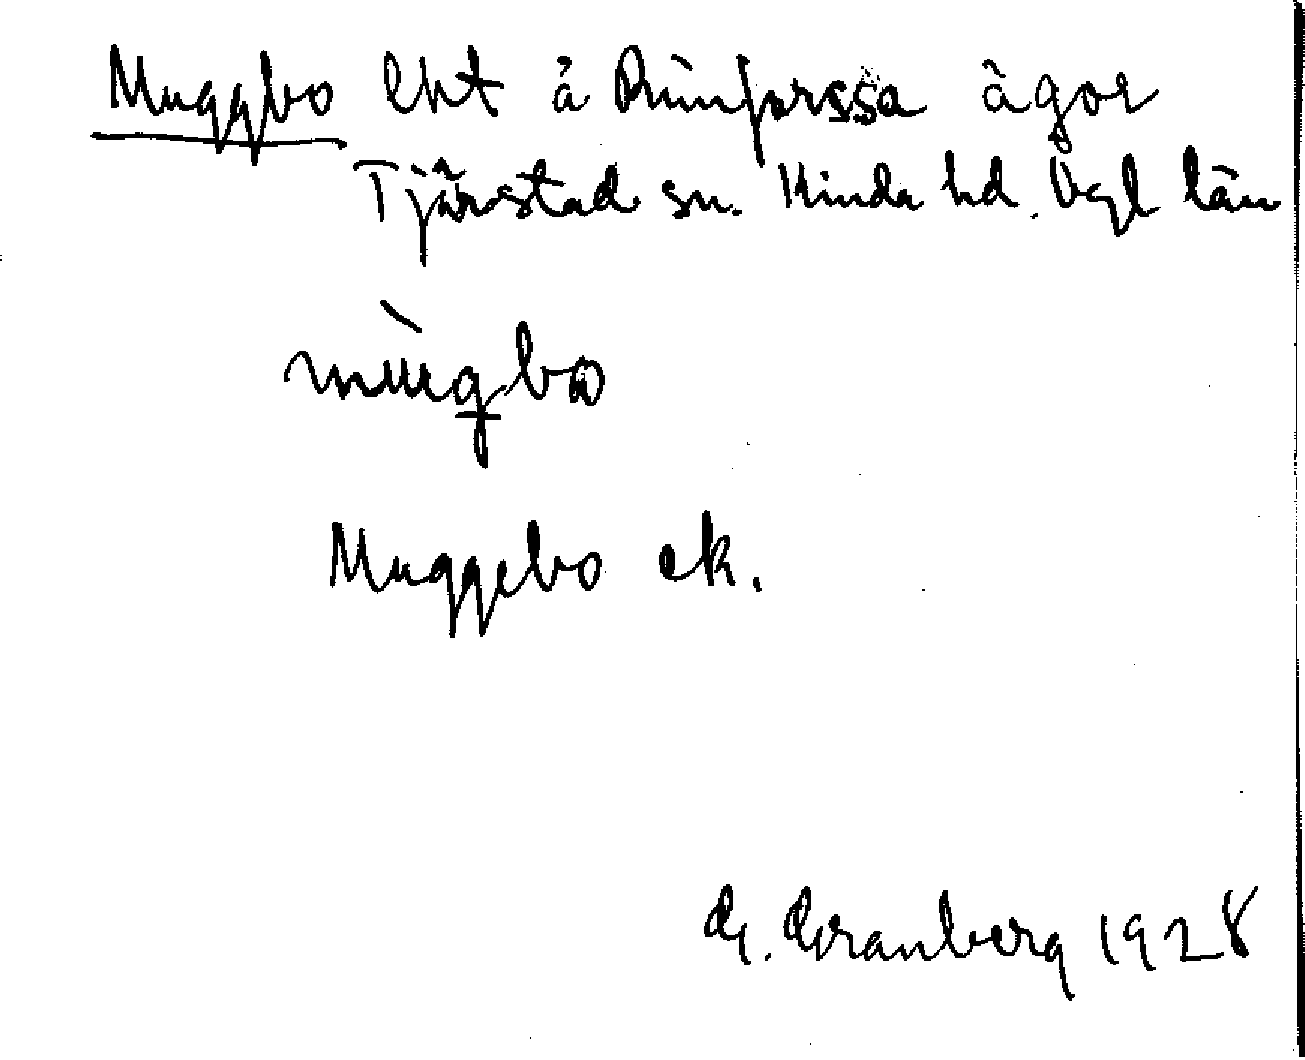 Muggbo lht å Rimforssa ägor
Tjärstad sn. Kinda hd. Ögl län
mùgbo
Muggebo ek.
G. Granberg 1928